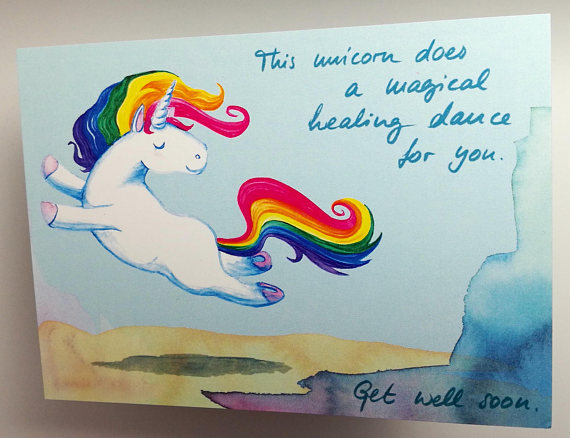 This unicorn does
a magical
healing dance
for you.
Get well soon.